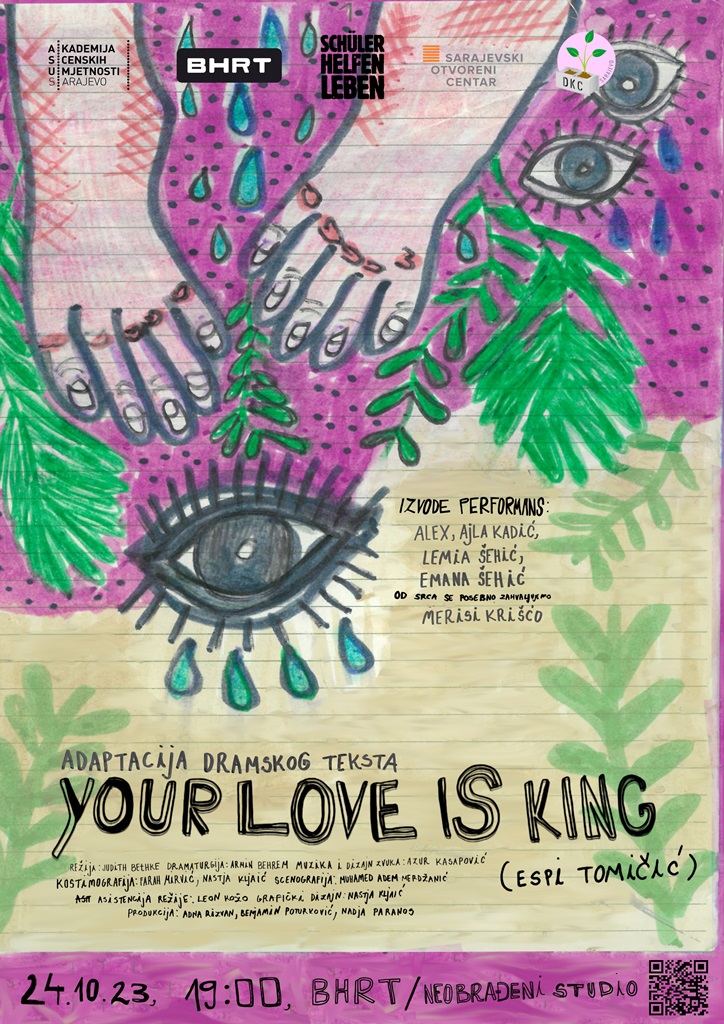 AKADEMIJA
SCENSKIH
UMJETNOSTI
SARAJEVO
BHRT
SCHÜLER
HELFEN
LEBEN
SARAJEVSKI
OTVORENI
CENTAR
DKC
SARAJEVO
IZVODE PERFORMANS:
ALEX, AJLA KADIĆ,
LEMIA ŠEHIĆ,
EMANA ŠEHIĆ
OD SRCA SE POSEBNO ZAHVALJUJEMO
MERISI KRIŠĆO
ADAPTACIJA DRAMSKOG TEKSTA
YOUR LOVE IS KING
(ESPI TOMIČIĆ)
REŽIJA: JUDITH BETHKE DRAMATURGIJA: ARMIN BEHREM MUZIKA I DIZAJN ZVUKA: AZUR KASAPOVIĆ
KOSTIMOGRAFIJA: FARAH MIRVIĆ, NASTJA KLJAIĆ SCENOGRAFIJA: MUHAMED ADEM MERDŽANIĆ
ASISTENCIJA REŽIJE: LEON KOŽO GRAFIČKI DIZAJN: NASTJA KLJAIĆ
PRODUKCIJA: ADNA RIZVAN, BENJAMIN POTURKOVIĆ, NADJA PARANOS
24.10.23, 19:00, BHRT/NEOBRAĐENI STUDIO